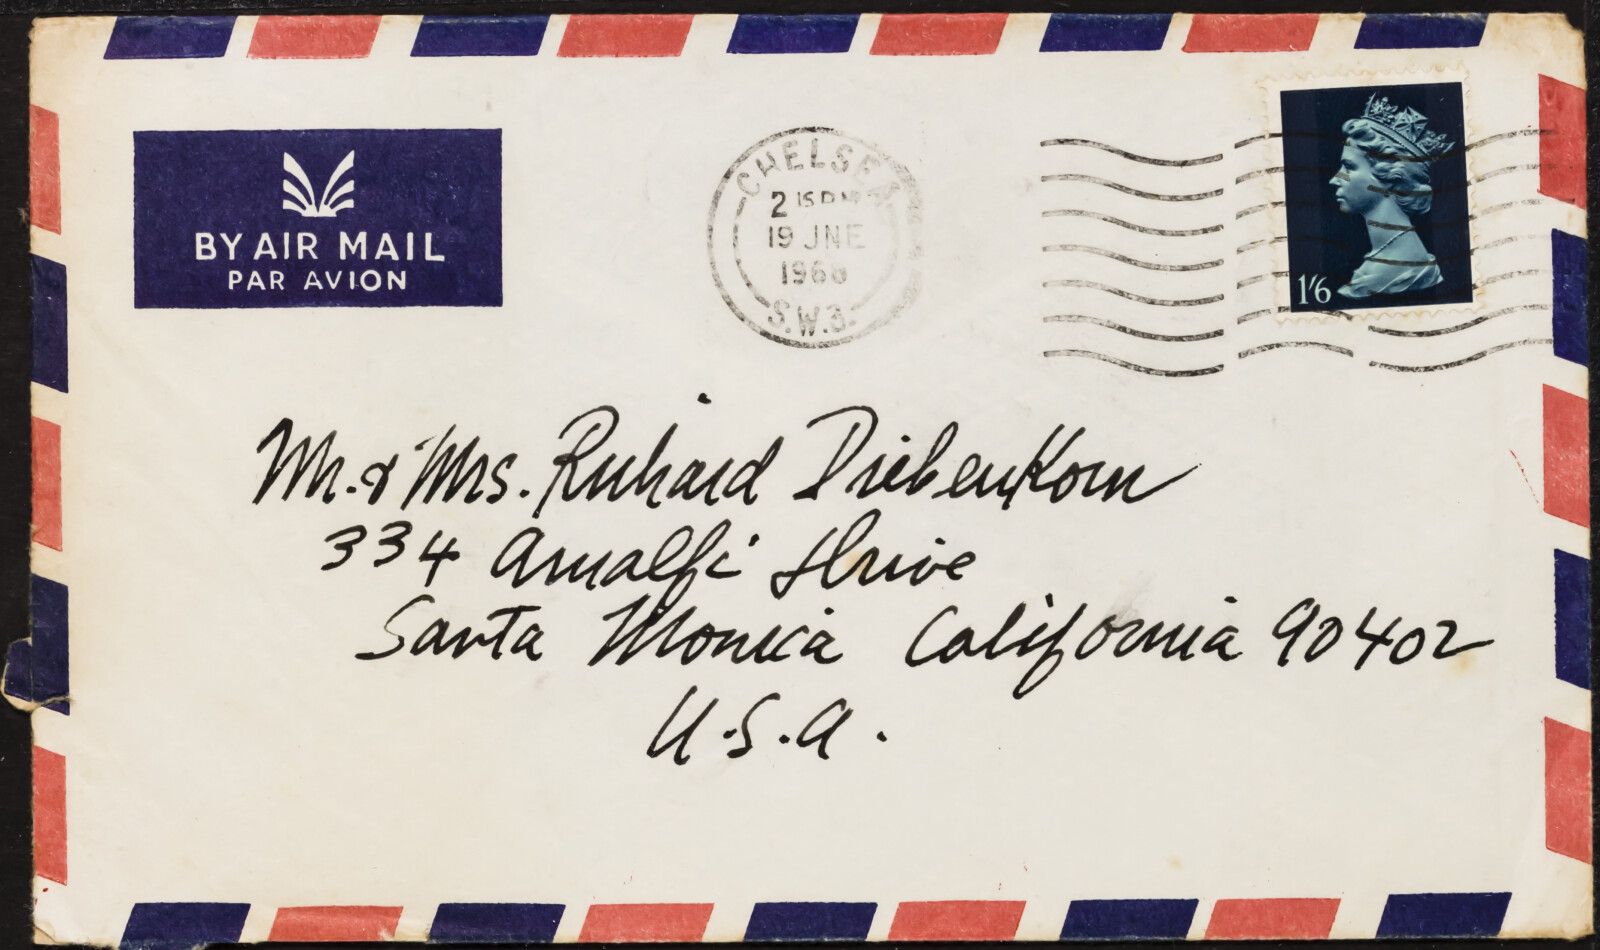 BY AIR MAIL
PAR AVION
CHELSEA
2 15 PM
19 JNE
1968
S.W.3.
1'6
Mr. & Mrs. Richard Diebenkorn
334 Amalfi Drive
Santa Monica California 90402
U.S.A.